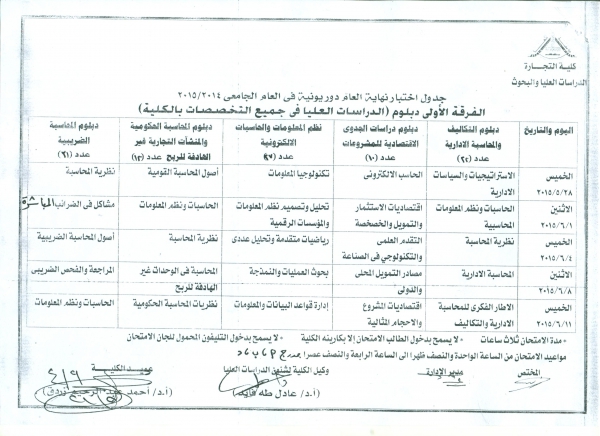 كلية التجارة
الدراسات العليا والبحوث
جدول اختبار نهاية العام دور يونية فى العام الجامعى ٢٠١٥/٢٠١٤
الفرقة الأولى دبلوم (الدراسات العليا فى جميع التخصصات بالكلية)
اليوم والتاريخ
دبلوم التكاليف والمحاسبة الادارية
عدد (٢٤)
دبلوم دراسات الجدوى الاقتصادية للمشروعات
عدد (١٠)
نظم المعلومات والحاسبات الالكترونية
عدد (٧)
دبلوم المحاسبة الحكومية والمنشآت التجارية غير الهادفة للربح عدد (١٣)
دبلوم المحاسبة الضريبية
عدد (٦١)
الخميس ٢٠١٥/٥/٢٨
الاستراتيجيات والسياسات الادارية
الحاسب الالكترونى
تكنولوجيا المعلومات
أصول المحاسبة القومية
نظرية المحاسبة
الاثنين ٢٠١٥/٦/١
الحاسبات ونظم المعلومات المحاسبية
اقتصاديات الاستثمار والتمويل والخصخصة
تحليل وتصميم نظم المعلومات والمؤسسات الرقمية
الحاسبات ونظم المعلومات
مشاكل فى الضرائب المباشرة
الخميس ٢٠١٥/٦/٤
نظرية المحاسبة
التقدم العلمى والتكنولوجى فى الصناعة
رياضيات متقدمة وتحليل عددى
نظرية المحاسبة
أصول المحاسبة الضريبية
الاثنين ٢٠١٥/٦/٨
المحاسبة الادارية
مصادر التمويل المحلى والدولى
بحوث العمليات والنمذجة
المحاسبة فى الوحدات غير الهادفة للربح
المراجعة والفحص الضريبى
الخميس ٢٠١٥/٦/١١
الاطار الفكرى للمحاسبة الادارية والتكاليف
اقتصاديات المشروع والاحجام المثالية
إدارة قواعد البيانات والمعلومات
نظريات المحاسبة الحكومية
الحاسبات ونظم المعلومات
• مدة الامتحان ثلاث ساعات • لا يسمح بدخول الطالب الامتحان إلا بكارنيه الكلية • لا يسمح بدخول التليفون المحمول للجان الامتحان
مواعيد الامتحان من الساعة الواحدة والنصف ظهرا الى الساعة الرابعة والنصف عصرا
المختص
مدير الإدارة
وكيل الكلية لشئون الدراسات العليا
عميد الكلية
(أ.د/ عادل طه فايد)
(أ.د/ أحمد عبد الرحيم زردق)